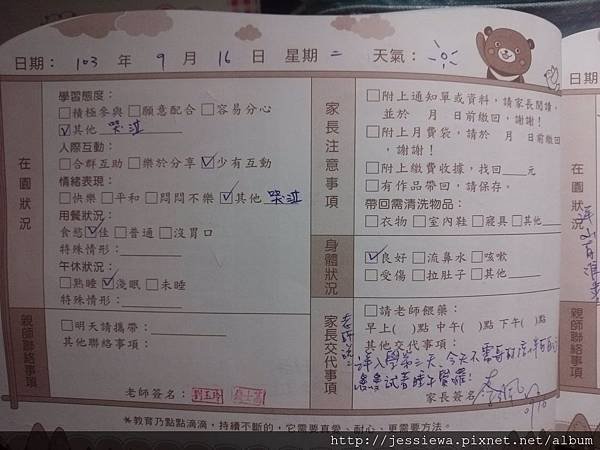 日期： 103 年 9 月 16 日 星期 二 天氣：
在園狀況
學習態度：
□積極參與 □願意配合 □容易分心
☑其他 哭泣
人際互動：
□合群互助 □樂於分享 ☑少有互動
情緒表現：
□快樂 □平和 □悶悶不樂 ☑其他 哭泣
用餐狀況：
食慾 ☑佳 □普通 □沒胃口
特殊情形：
午休狀況：
□熟睡 ☑淺眠 □未睡
特殊情形：
親師聯絡事項
□明天請攜帶：
其他聯絡事項：
老師簽名：
家長注意事項
□附上通知單或資料，請家長閱讀，
並於 月 日前繳回，謝謝！
□附上月費袋，請於 月 日前繳回
，謝謝！
□附上繳費收據，找回 元
□有作品帶回，請保存。
帶回需清洗物品：
□衣物 □室內鞋 □寢具 □其他
身體狀況
☑良好 □流鼻水 □咳嗽
□受傷 □拉肚子 □其他
家長交代事項
□請老師餵藥：
早上( )點 中午( )點 下午( )點
其他交代事項：
家長簽名
＊教育乃點點滴滴，持續不斷的，它需要真愛、耐心、更需要方法。
日期
在園狀況
親師聯絡事項
http://jessiewa.pixnet.net/album